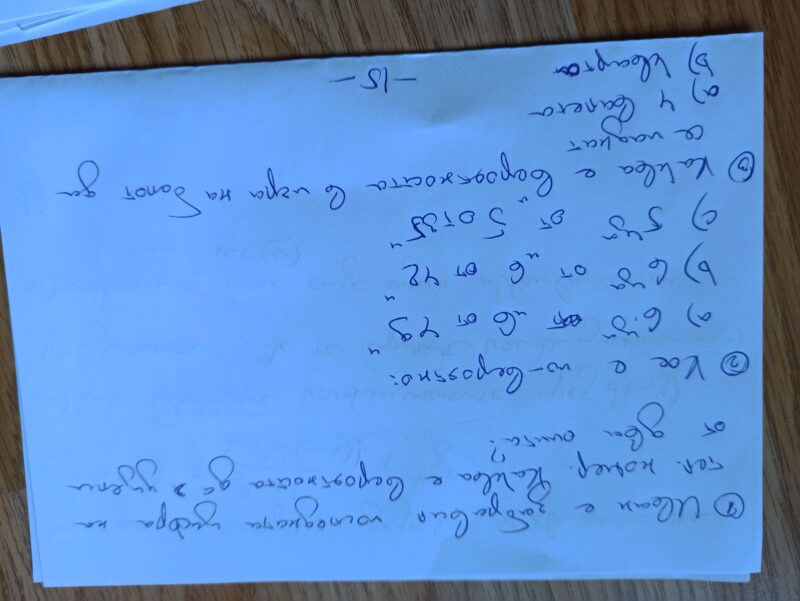 ① Иван е забравил последната цифра на
тел. номер. Каква е вероятността да я уцели
от два опита?
② Кое е по-вероятно:
a) 6-ца от "6 от 49"
b) 6-ца от "6 от 42"
c) 5-ца от "5 от 35"
③ Каква е вероятността в игра на белот да
се паднат
a) 4 валета
b) кварта
-15-